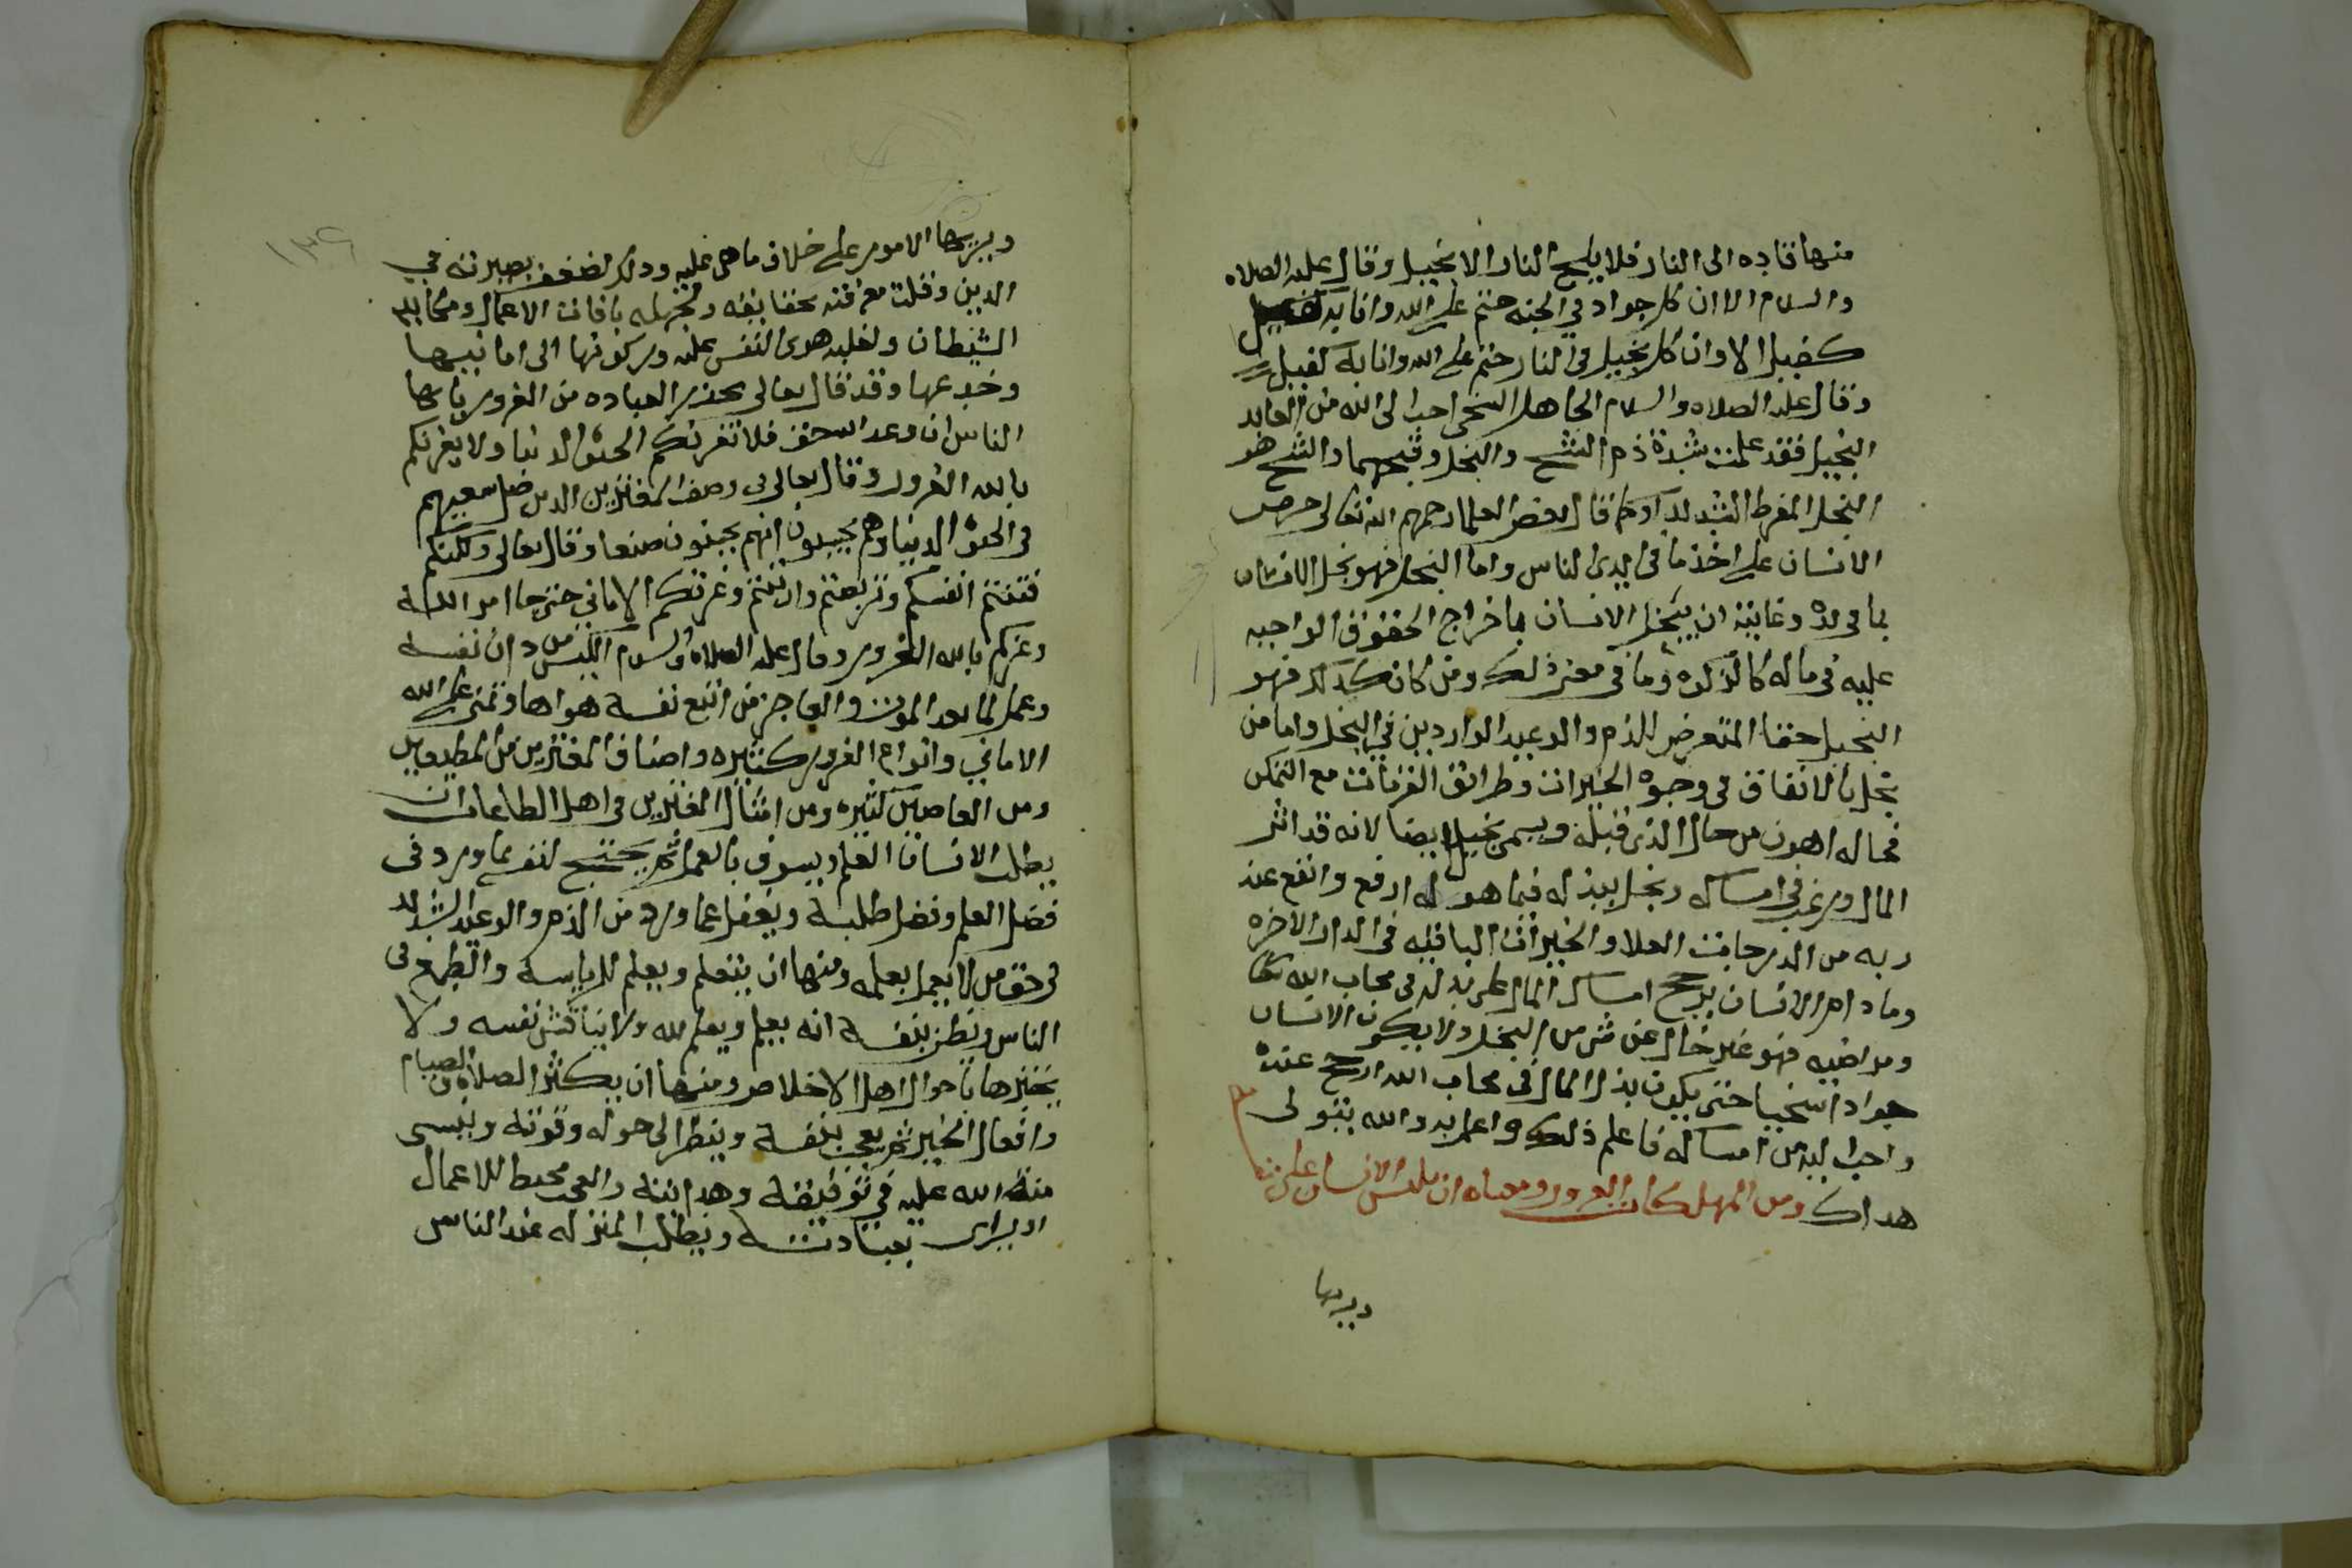 منها قاده الى النار فلا يلج النار الا بخيل وقال عليه الصلاه
والسلام الا ان كل جواد في الجنه حتم على الله وانا به
كفيل الا وان كل بخيل في النار حتم على الله وانا به كفيل
وقال عليه الصلاه والسلام الجاهل السخي احب الى الله من العابد
البخيل فقد علمت شدة ذم الشح والبخل وقبحهما والشح هو
البخل المفرط الشديد او كما قال بعض العلما رحمهم الله تعالى حرص
الانسان على اخذ ما في ايدي الناس واما البخل فهو بخل الانسان
بما في يده وغايته ان يبخل الانسان باخراج الحقوق الواجبه
عليه في ماله كالزكوه وما في معنى ذلك ومن كان كذلك فهو
البخيل حقا المتعرض للذم والوعيد الواردين في البخل واما من
بخل بالانفاق في وجوه الخيرات وطرائق القربات مع التمكن
فحاله اهون من حال الذي قبله ويسمى بخيل ايضا لانه قد اثر
المال ورغب في امساكه وبخل ببذله فيما هو له ارفع وانفع عند
ربه من الدرجات العلا والخيرات الباقيه في الدار الاخره
وما دام الانسان يرجح امساك المال على بذله في محاب الله تعا
ومراضيه فهو غير خال عن شي من البخل ولا يكون الانسان
جوادا سخيا حتى يكون بذل المال في محاب الله ارجح عنده
واحب اليه من امساكه فاعلم ذلك واعمل به والله يتولى
هداك ومن المهلكات الغرور ومعناه ان يلبس الانسان على نفسه
ويريها
١٣٤
ويريها الامور على خلاف ما هي عليه وذلك لضعف بصيرته في
الدين وقلت معرفته بحقايقه ولجهله بافات الاعمال ومكايد
الشيطان ولغلبه هوى النفس عليه وركونها الى امانيها
وخدعها وقد قال تعالى يحذر العباده من الغرور ياايها
الناس ان وعد الله حق فلا تغرنكم الحيوة الدنيا ولا يغرنكم
بالله الغرور وقال تعالى في وصف المغترين الذين ضل سعيهم
في الحيوة الدنيا وهم يحسبون انهم يحسنون صنعا وقال تعالى ولكنكم
فتنتم انفسكم وتربصتم وارتبتم وغرتكم الاماني حتى جا امر الله
وغركم بالله الغرور وقال عليه الصلاه والسلام الكيس من دان نفسه
وعمل لما بعد الموت والعاجز من اتبع نفسه هواها وتمنى على الله
الاماني وانواع الغرور كثيره واصناف المغترين من المطيعين
ومن العاصين كثيره ومن امثال المغترين في اهل الطاعات ان
يطلب الانسان العلم ويسوف بالعمل ثم يحتج لنفسه بما ورد في
فضل العلم وفضل طلبه ويغفل عما ورد من الذم والوعيد الشديد
في حق من لا يعمل بعلمه ومنها ان يتعلم ويعلم للرياسه والطمع في
الناس ويظن بنفسه انه يعلم ويعلم لله ولا يناقش نفسه ولا
يختبرها باحوال اهل الاخلاص ومنها ان يكثر الصلاه والصيام
وافعال الخير ثم يعجب بنفسه وينظر الى حوله وقوته وينسى
منة الله عليه في توفيقه وهدايته والعجب محبط للاعمال
او يرائي بعبادته ويطلب المنزله عند الناس